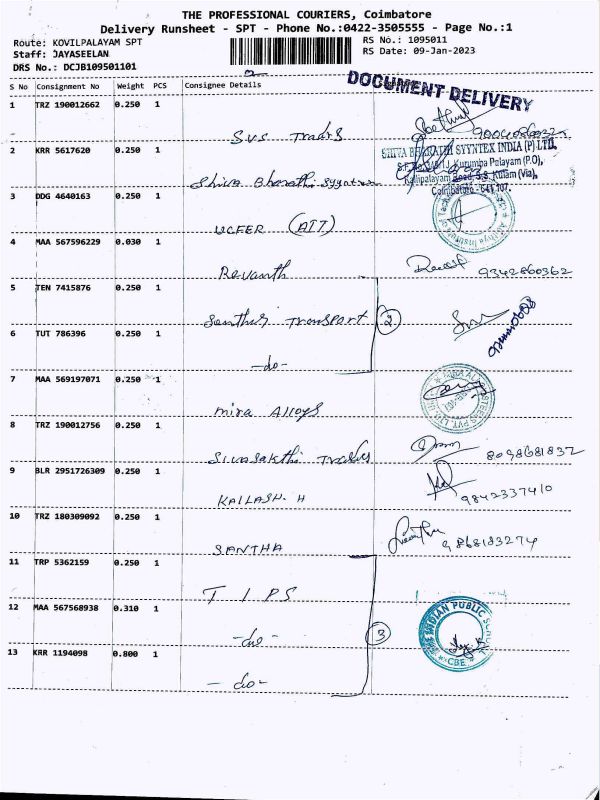 THE PROFESSIONAL COURIERS, Coimbatore
Delivery Runsheet - SPT - Phone No.:0422-3505555 - Page No.:1
Route: KOVILPALAYAM SPT RS No.: 1095011
Staff: JAYASEELAN RS Date: 09-Jan-2023
DRS No.: DCJB109501101
S No Consignment No Weight PCS Consignee Details
DOCUMENT DELIVERY
1 TRZ 190012662 0.250 1
SVS Traders
2 KRR 5617620 0.250 1
SHIVA BHARATH SYYNTEX INDIA (P) LTD.
Kurumba Palayam (P.O),
S.S. Kulam (Via),
Coimbatore - 641 107.
Shiva Bharath Syyntex
3 DDG 4640163 0.250 1
UCFER (AIT)
4 MAA 567596229 0.030 1
Revanth 9342860362
5 TEN 7415876 0.250 1
Santhis Transport 2
6 TUT 786396 0.250 1
-do-
7 MAA 569197071 0.250 1
Mira Alloys
8 TRZ 190012756 0.250 1
Sivasakthi Traders 8098681832
9 BLR 2951726309 0.250 1
KAILASH. H 9842337410
10 TRZ 180309092 0.250 1
SANTHA 9868183274
11 TRP 5362159 0.250 1
T I PS
12 MAA 567568938 0.310 1
THE INDIAN PUBLIC SCHOOL
CBE
-do- 3
13 KRR 1194098 0.800 1
- do-